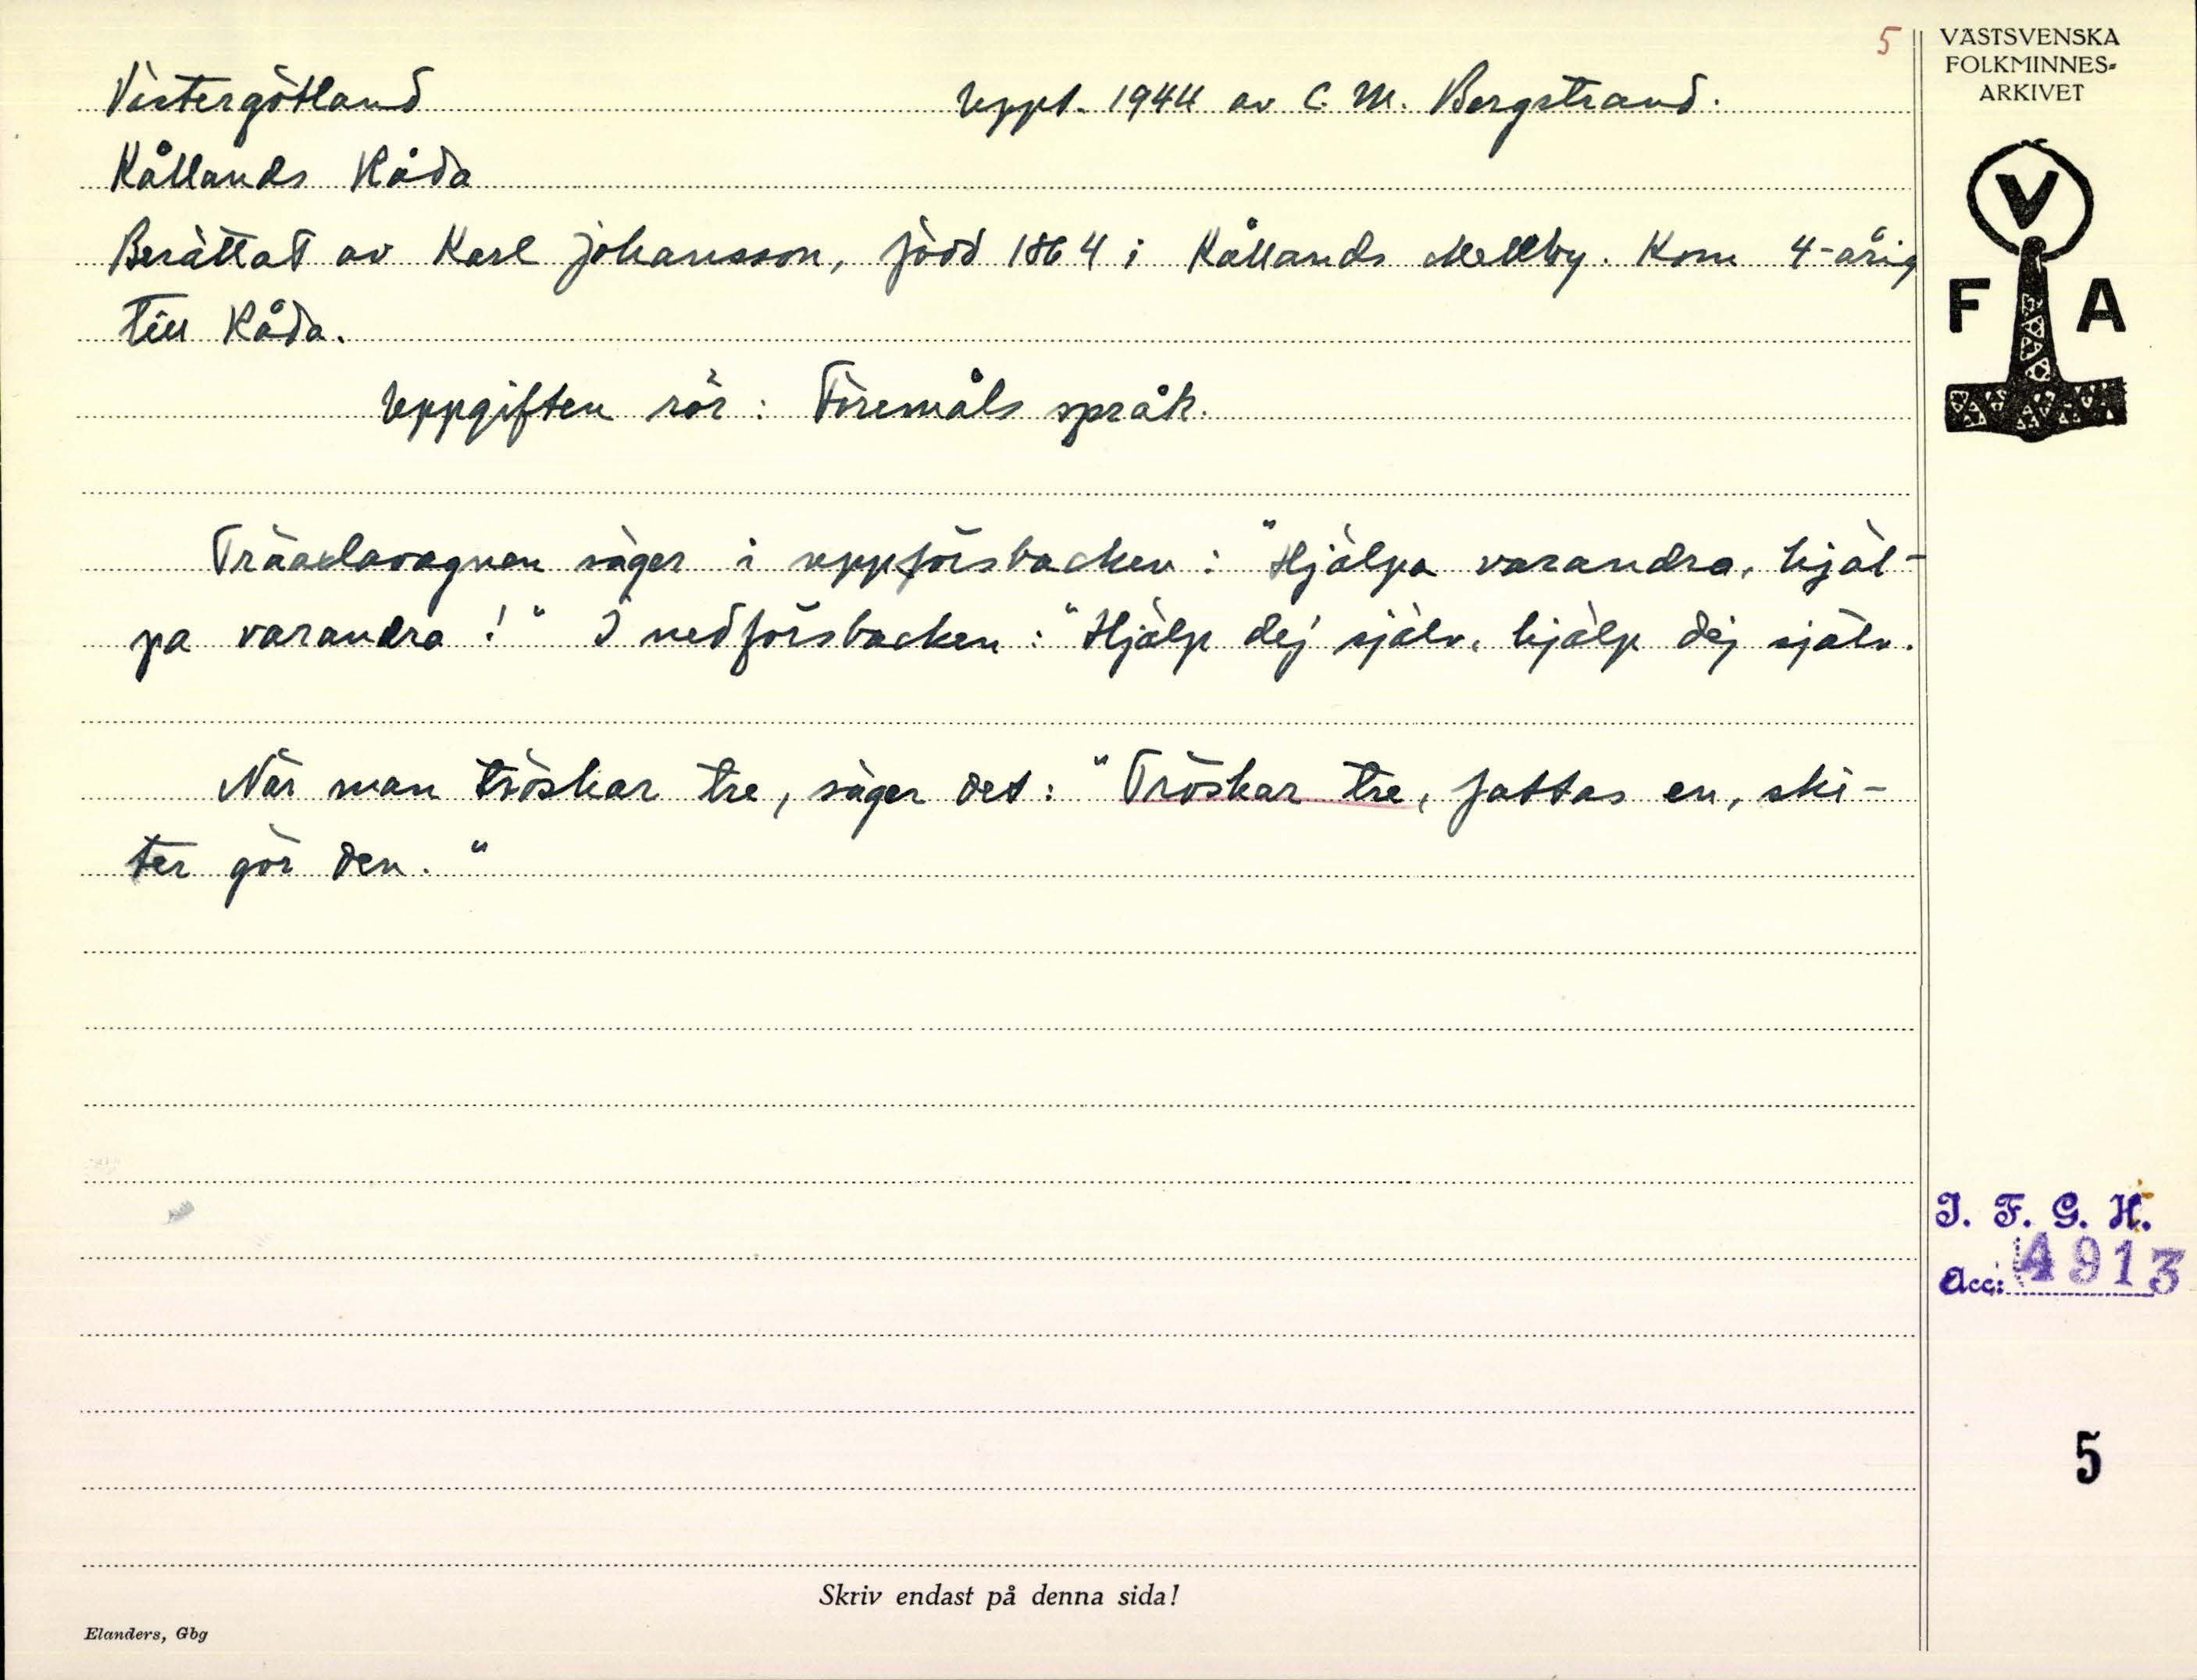 5
VÄSTSVENSKA
FOLKMINNES-
ARKIVET
Västergötland
Uppt. 1944 av C. M. Bergstrand.
Kållands Råda
Berättat av Karl Johansson, född 1864 i Kållands Mellby. Kom 4-årig
till Råda.
Uppgiften rör: Föremåls språk.
V
F A
Träaxlavagnen säger i uppförsbacken: "Hjälpa varandra, hjäl-
pa varandra!" I nedförsbacken: "Hjälp dej själv, hjälp dej själv.
När man tröskar tre, säger det: "Tröskar tre, fattas en, ski-
ter gör den."
I. F. G. H.
Acc: 4913
5
Skriv endast på denna sida!
Elanders, Gbg